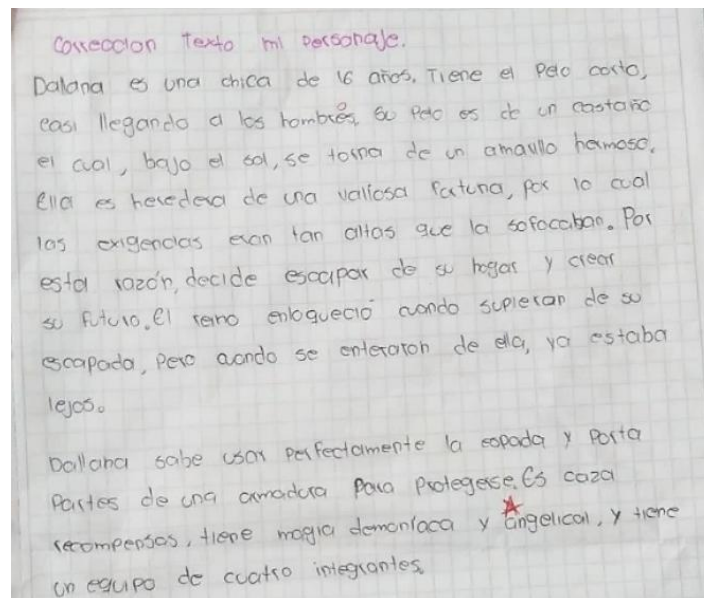 Correccion Texto mi personaje.
Dalana es una chica de 16 años. Tiene el pelo corto,
casi llegando a los hombres, su pelo es de un castaño
el cual, bajo el sol, se torna de un amarillo hermoso.
Ella es heredera de una valiosa fortuna, por lo cual
las exigencias eran tan altas que la sofocaban. Por
esta razón, decide escapar de su hogar y crear
su futuro. El reino enloqueció cuando supieran de su
escapada, pero cuando se enteraron de ella, ya estaba
lejos.
Dallana sabe usar perfectamente la espada y porta
partes de una armadura para protegerse. Es caza
recompensas, tiene magia demoníaca y Angelical, y tiene
un equipo de cuatro integrantes.